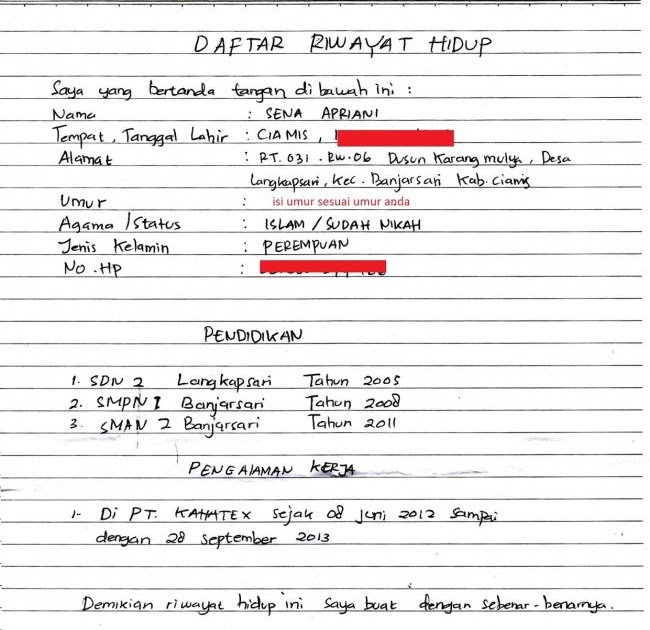 DAFTAR RIWAYAT HIDUP
Saya yang bertanda tangan di bawah ini :
Nama : SENA APRIANI
Tempat, Tanggal Lahir : CIAMIS ,
Alamat : RT. 031 . RW. 06 Dusun Karang mulya, Desa
Langkapsari, Kec. Banjarsari Kab. Ciamis
Umur : isi umur sesuai umur anda
Agama / Status : ISLAM / SUDAH NIKAH
Jenis Kelamin : PEREMPUAN
No. HP :
PENDIDIKAN
1. SDN 2 Langkapsari Tahun 2005
2. SMPN 1 Banjarsari Tahun 2008
3. SMAN 2 Banjarsari Tahun 2011
PENGALAMAN KERJA
1- Di PT. KAHATEX sejak 08 Juni 2012 sampai
dengan 28 September 2013
Demikian riwayat hidup ini saya buat dengan sebenar-benarnya.